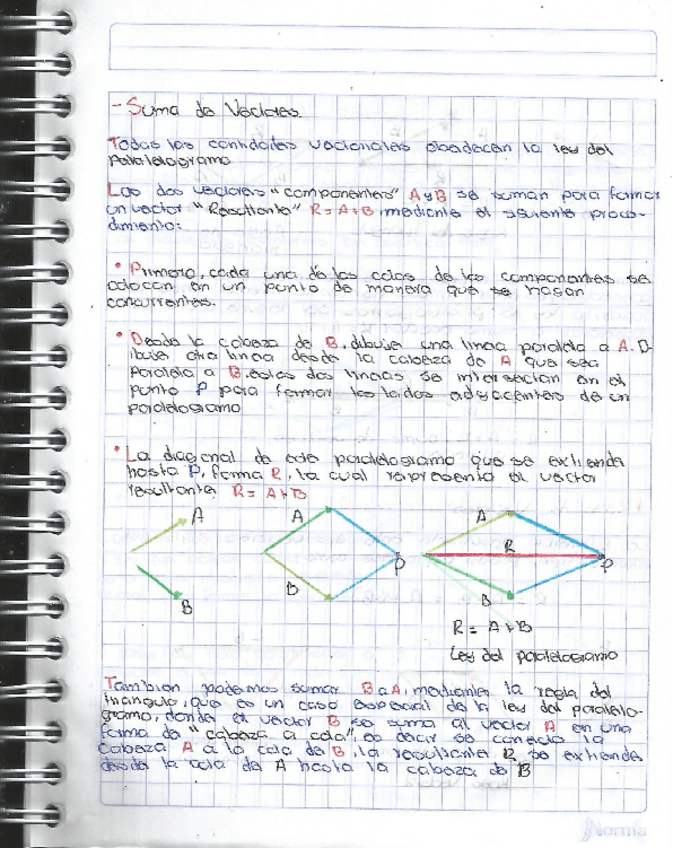 - Suma de Vectores.
Todas las cantidades vectoriales obedecen la ley del
Paralelogramo
Los dos vectores "componentes" A y B se suman para formar
un vector "Resultante" R = A + B, mediante el siguiente proce-
dimiento:
• Primero, cada una de las colas de los componentes se
colocan en un punto de manera que se hagan
concurrentes.
• Desde la cabeza de B, dibuje una linea paralela a A. D
ibuje otra linea desde la cabeza de A que sea
Paralela a B, estas dos lineas se intersectan en el
punto P para formar los lados adyacentes de un
paralelogramo
• La diagonal de este paralelogramo que se extiende
hasta P, forma R, la cual representa el vector
resultante R = A + B
A
B
A
B
P
A
R
B
P
R = A + B
Ley del paralelogramo
Tambien podemos sumar B a A, mediante la regla del
triangulo, que es un caso especial de la ley del paralelo-
gramo, donde el vector B se suma al vector A en una
forma de "cabeza a cola", es decir se conecta la
cabeza A a la cola de B, la resultante R se extiende
desde la cola de A hasta la cabeza de B
Norma